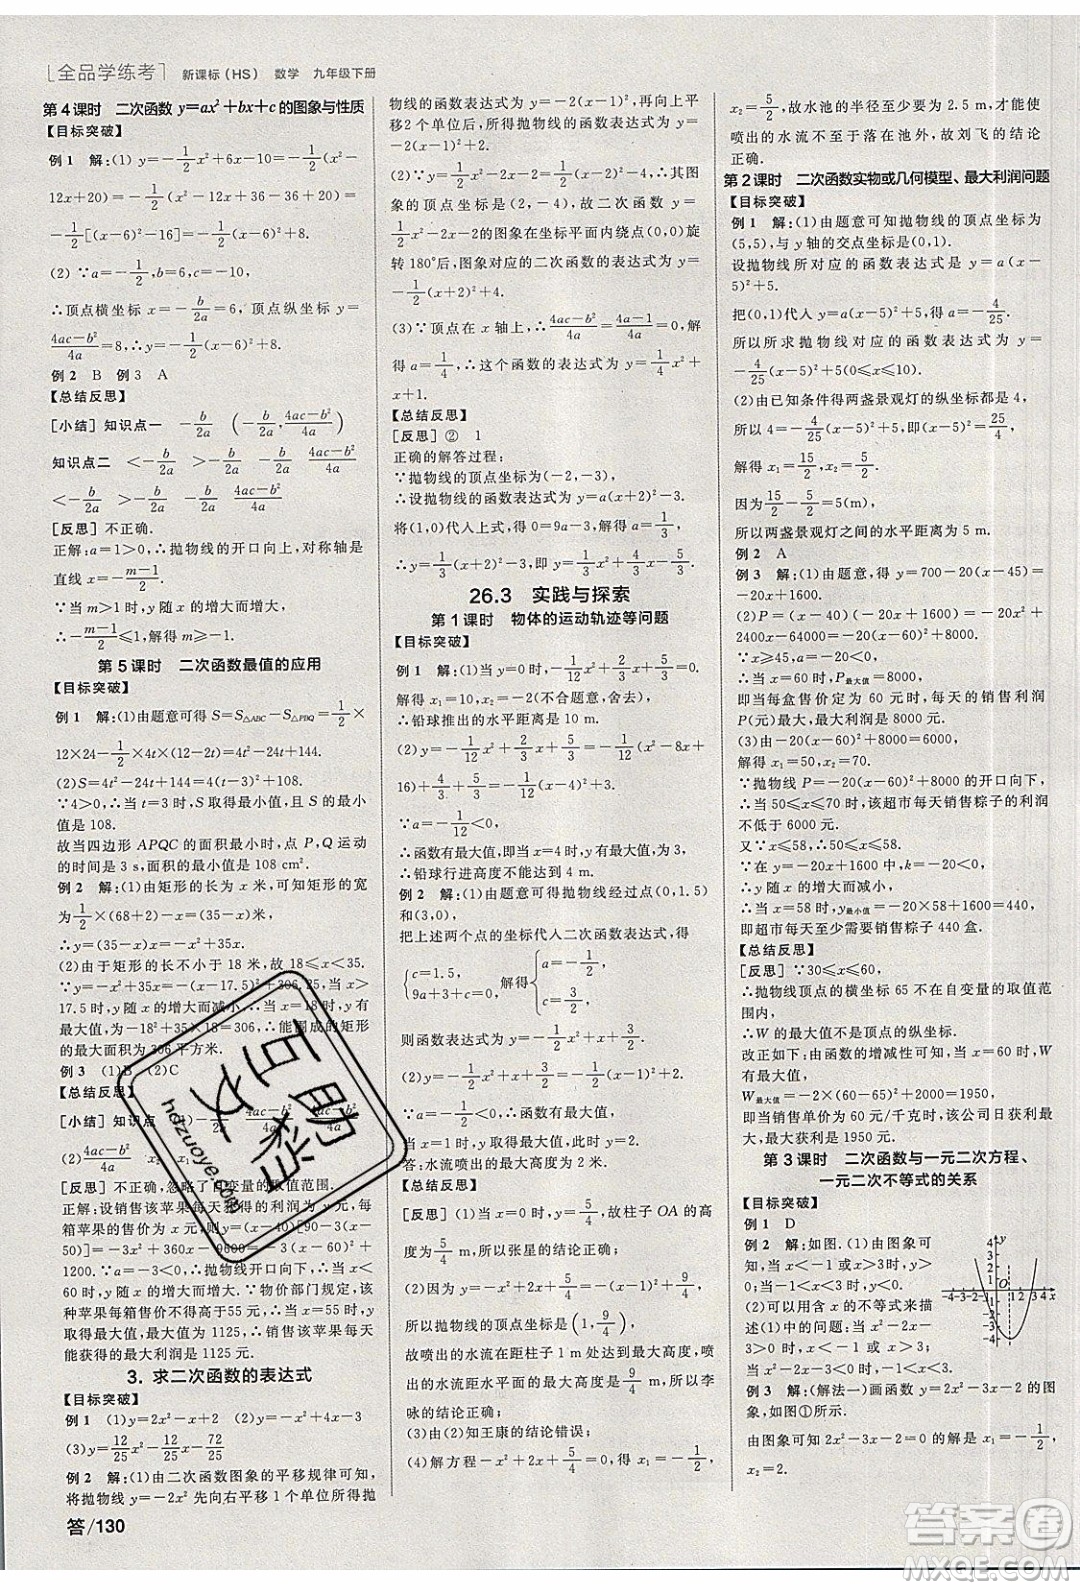 全品学练考 新课标(HS) 数学 九年级下册
第4课时 二次函数 y=ax²+bx+c 的图象与性质
【目标突破】
例1 解:(1) y=-1/2x²+6x-10=-1/2(x²-
12x+20)=-1/2(x²-12x+36-36+20)=
-1/2[(x-6)²-16]=-1/2(x-6)²+8.
(2) ∵a=-1/2,b=6,c=-10,
∴顶点横坐标 x=-b/2a=6,顶点纵坐标 y=
(4ac-b²)/4a=8,∴y=-1/2(x-6)²+8.
例2 B 例3 A
【总结反思】
[小结] 知识点一 -b/2a (-b/2a, (4ac-b²)/4a)
知识点二 <-b/2a >-b/2a -b/2a (4ac-b²)/4a
<-b/2a >-b/2a -b/2a (4ac-b²)/4a
[反思] 不正确.
正解:a=1>0,∴抛物线的开口向上,对称轴是
直线 x=-(m-1)/2.
∵当 x>1 时,y 随 x 的增大而增大,
∴-(m-1)/2≤1,解得 m≥-1.
第5课时 二次函数最值的应用
【目标突破】
例1 解:(1)由题意可得 S=S△ABC-S△PBQ=1/2×
12×24-1/2×4t×(12-2t)=4t²-24t+144.
(2)S=4t²-24t+144=4(t-3)²+108.
∵4>0,∴当 t=3 时,S 取得最小值,且最小
值是 108.
故当四边形 APQC 的面积最小时,点 P,Q 运动
的时间是 3 s,面积的最小值是 108 cm².
例2 解:(1)由矩形的长为 x 米,可知矩形的宽
为1/2×(68+2)-x=(35-x)米,
∴y=(35-x)x=-x²+35x.
(2)由于矩形的长不小于 18 米,故 18≤x<35.
y=-x²+35x=-(x-17.5)²+306.25,当 x>
17.5 时,y 随 x 的增大而减小,故当 x=18 时,y
有最大值,为-18²+35×18=306,∴能围成的矩形
的最大面积为 306 平方米.
例3 (1)B (2)C
【总结反思】
[小结] 知识点 (1)-b/2a (4ac-b²)/4a (4ac-b²)/4a
(2)(4ac-b²)/4a x₁ x₂
[反思] 不正确,忽略了自变量的取值范围.
正解:设销售该苹果每天的利润为 y 元,每
箱苹果的售价为 x 元,则 y=(x-40)[90-3(x
-50)]=-3x²+360x-9600=-3(x-60)²+
1200.∵a=-3<0,∴抛物线开口向下,当 x<
60 时,y 随 x 的增大而增大.∵物价部门规定该
种苹果每箱售价不得高于55元,∴当 x=55 时,
y 取得最大值,为 1125,∴销售该苹果每天可获
得的最大利润是 1125 元.
3. 求二次函数的表达式
【目标突破】
例1 (1)y=2x²-x+2 (2)y=-x²+2x
(3)y=12/25x²-12/25x-72/25
例2 解:(1)由二次函数图象的平移规律可知,
将抛物线 y=-2x² 先向右平移 1 个单位所得抛
答/130
物线的函数表达式为 y=-2(x-1)²,再向上平
移2 个单位后,所得抛物线的函数表达式为 y=
-2(x-1)²+2.
(2)∵y=1/2x²-2x-2=1/2(x-2)²-4,∴其图
象的顶点坐标为(2,-4),故二次函数 y=
1/2x²-2x-2 的图象在坐标平面内绕点(0,0)旋
转 180°后,图象对应的二次函数的表达式为 y=
-1/2(x+2)²+4.
(3)∵顶点在 x 轴上,∴(4ac-b²)/4a=(4a-1)/4a=0,解
得 a=1/4,∴这个函数的表达式为 y=1/4x²+
x+1.
【总结反思】
[反思] ② 1
正确的解答过程:
∵抛物线的顶点坐标为(-2,-3),
∴设抛物线的函数表达式为 y=a(x+2)²-3.
将(1,0)代入上式,得 0=9a-3,解得 a=1/3,
∴y=1/3(x+2)²-3,即 y=1/3x²+4/3x-5/3.
26.3 实践与探索
第1课时 物体的运动轨迹等问题
【目标突破】
例1 解:(1)当 y=0 时,-1/12x²+2/3x+5/3=0.
解得 x₁=10,x₂=-2(不合题意,舍去),
∴铅球推出的水平距离是 10 m.
(2) y=-1/12x²+2/3x+5/3=-1/12(x²-8x+
16)+4/3+5/3=-1/12(x-4)²+3.
∵a=-1/12<0,
∴函数有最大值,当 x=4 时,y最大值=3,
∴铅球行进高度不能达到 4 m.
例2 解:(1)由题意可得抛物线经过点(0,1.5)
和(3,0),
把上述两个点的坐标代入二次函数表达式,得
{c=1.5, 9a+3+c=0, 解得 {a=-1/2, c=3/2,
则函数表达式为 y=-1/2x²+x+3/2.
(2) y=-1/2x²+x+3/2=-1/2(x-1)²+2,
∵-1/2<0,∴函数有最大值,
当 x=1 时,y 取得最大值,此时 y=2.
答:水流喷出的最大高度为 2 米.
【总结反思】
[反思] (1)当 x=0 时,y=5/4,故柱子 OA 的高
度为5/4 m,所以张星的结论正确;
(2)因为 y=-x²+2x+5/4=-(x-1)²+9/4,
所以抛物线的顶点坐标为(1,9/4),
故喷出的水流在距柱子 1 m 处达到最大高度,
喷出的水流距水平面的最大高度是9/4 m,所以李
咏的结论正确;
(3)由(2)可知王康的结论错误;
(4)解方程-x²+2x+5/4=0,得 x₁=-1/2,
x₂=5/2,故水池的半径至少要为 2.5 m,才能使
喷出的水流不至于落在池外,故刘飞的结论
正确.
第2课时 二次函数实物或几何模型、最大利润问题
【目标突破】
例1 解:(1)由题意可知抛物线的顶点坐标为
(5,5),与 y 轴的交点坐标为(0,1).
设抛物线所对应的函数表达式是 y=a(x-
5)²+5.
把(0,1)代入 y=a(x-5)²+5,得 a=-4/25.
所以所求抛物线对应的函数表达式是 y=
-4/25(x-5)²+5(0≤x≤10).
(2)由已知条件得两盏景观灯的纵坐标都是 4,
所以 4=-4/25(x-5)²+5,即4/25(x-5)²=1,
解得 x₁=15/2,x₂=5/2.
因为15/2-5/2=5(m),
所以两盏景观灯之间的水平距离为 5 m.
例2 A
例3 解:(1)由题意,得 y=700-20(x-45)=
-20x+1600.
(2)P=(x-40)(-20x+1600)=-20x²+
2400x-64000=-20(x-60)²+8000.
∵x≥45,a=-20<0,
∴当 x=60 时,P最大值=8000,
即当每盒售价定为 60 元时,每天的销售利润
P(元)最大,最大利润是 8000 元.
(3)由题意,得-20(x-60)²+8000=6000,
解得 x₁=50,x₂=70.
∵抛物线 P=-20(x-60)²+8000 的开口向下,
∴当 50≤x≤70时,该超市每天销售粽子的利润
不低于 6000 元.
又∵x≤58,∴50≤x≤58.
∵在 y=-20x+1600 中,k=-20<0,
∴y 随 x 的增大而减小,
∴当x=58时,y最小值=-20×58+1600=440,
即超市每天至少销售粽子 440 盒.
【总结反思】
[反思] ∵30≤x≤60,
∴抛物线的顶点的横坐标 65 不在自变量的取值范
围内,
∴W 的最大值不是顶点的纵坐标.
改正如下:由函数的增减性可知,当 x=60 时,W
有最大值,
W最大值=-2×(60-65)²+2000=1950,
即当销售单价为 60 元/千克时,该公司日获利最
大,最大获利是 1950 元.
第3课时 二次函数与一元二次方程、
一元二次不等式的关系
【目标突破】
例1 D
例2 解:如图.(1)由图象可
知,当 x<-1 或 x>3 时,y>
0;当-1<x<3 时,y<0.
(2)可以用含 x 的不等式来描
述(1)中的问题:当 x<-1 或
x>3 时,x²-2x-3>0;当
-1<x<3 时,x²-2x-3<0.
例3 解:(解法一)画函数 y=2x²-3x-2 的图
象,如图①所示.
由图象可知2x²-3x-2=0 的解是 x₁=-1/2,
x₂=2.
y
4
3
2
1
O
-4 -3 -2 -1 1 2 3 4 x
-1
-2
-3
-4
互助文档
hdzuoye.com
答案圈
MXQE.COM